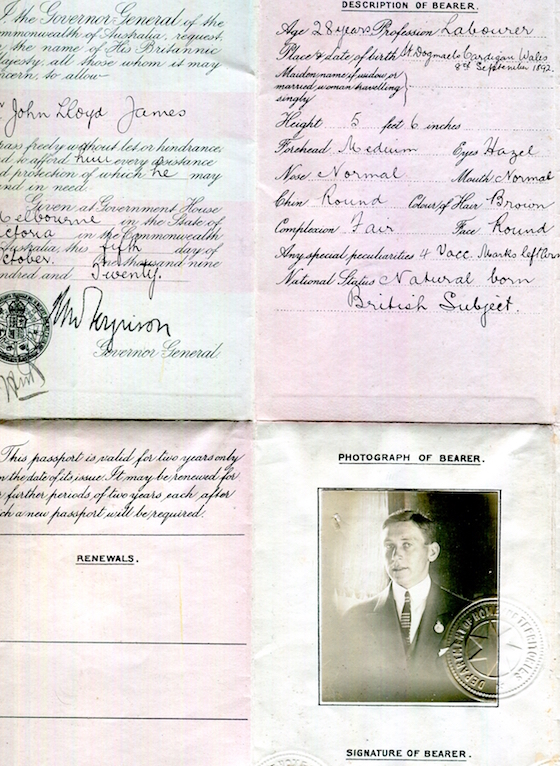 I the Governor-General of the
Commonwealth of Australia, request,
the name of His Britannic
Majesty, all those whom it may
concern, to allow
John Lloyd James
pass freely without let or hindrance,
to afford him every assistance
protection of which he may
and in need.
Given at Government House
Melbourne in the State of
Victoria in the Commonwealth
Australia this fifth day of
October. One thousand nine
hundred and Twenty.
Governor General
DESCRIPTION OF BEARER.
Age 28 years Profession Labourer
Place & date of birth St Dogmaels Cardigan Wales
8th September 1892.
Maiden name if widow or
married woman travelling
singly
Height 5 feet 6 inches
Forehead Medium Eyes Hazel
Nose Normal Mouth Normal
Chin Round Colour of Hair Brown
Complexion Fair Face Round
Any special peculiarities 4 Vacc. Marks left
National Status Natural born
British Subject.
This passport is valid for two years only
the date of its issue. It may be renewed for
further periods of two years each after
which a new passport will be required.
RENEWALS.
PHOTOGRAPH OF BEARER.
DEPARTMENT OF HOME & TERRITORIES
SIGNATURE OF BEARER.